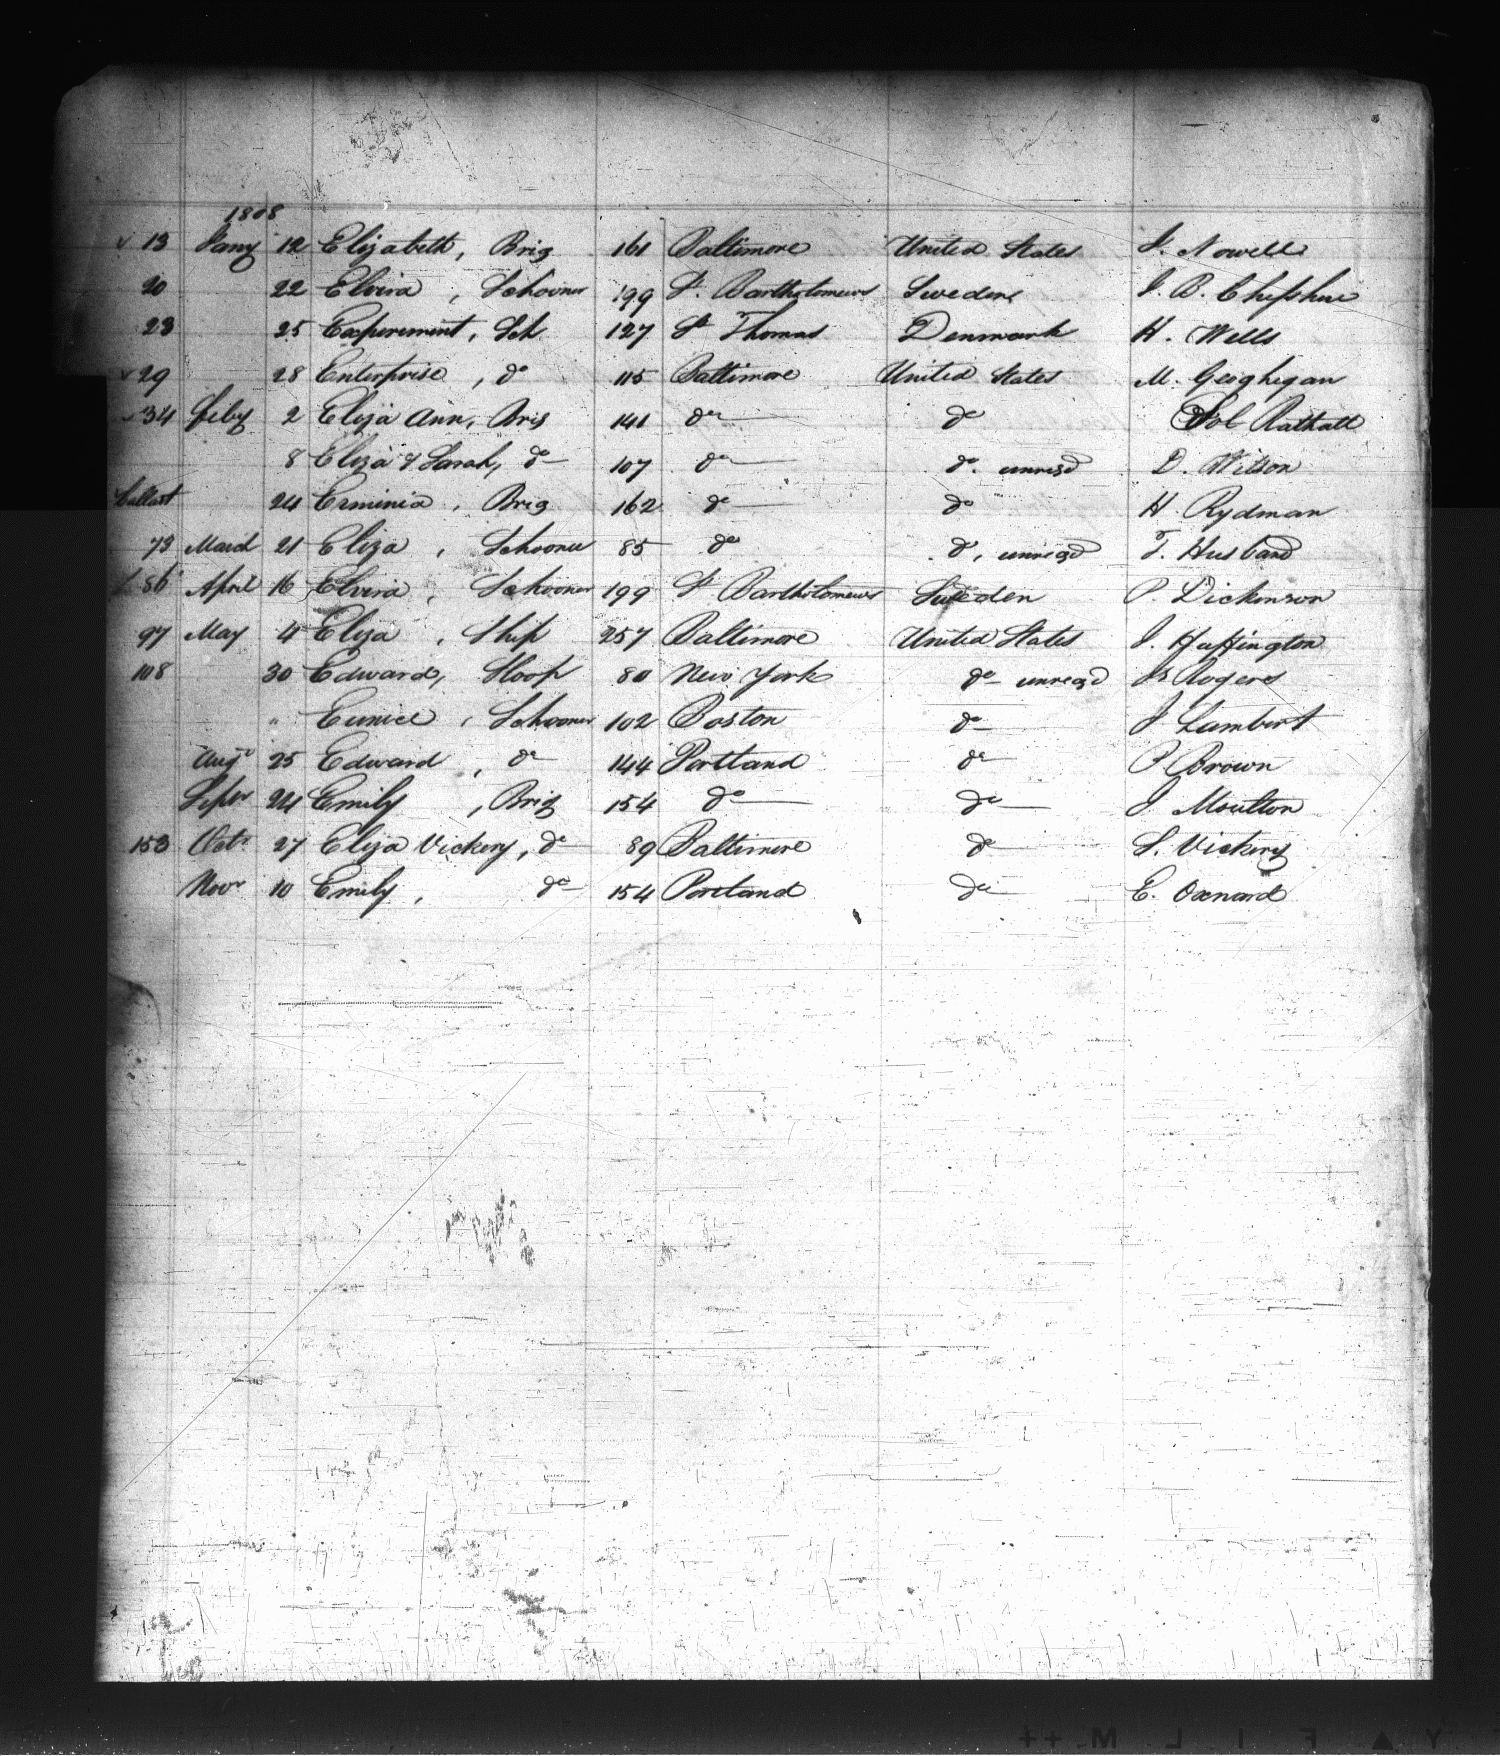 1808
13 Jany 12 Elizabeth, Brig 161 Baltimore United States J. Nowell
20 22 Elvira, Schooner 199 St. Bartholomews Sweden J. B. Cheshire
23 25 Experiment, Sch 127 St Thomas Denmark H. Wells
29 28 Enterprise, do 115 Baltimore United States M. Geoghegan
34 Feby 2 Eliza Ann, Brig 141 do do
8 Eliza & Sarah, do 107 do do. unregd D. Wilson
ballast 24 Erminia, Brig 162 do do H. Rydman
73 March 21 Eliza, Schooner 85 do do, unregd T. Husband
86 April 16 Elvira, Schooner 199 St Bartholomews Sweden P. Dickinson
97 May 4 Eliza, Ship 257 Baltimore United States J. Huffington
108 30 Edward, Sloop 80 New York do unregd Rogers
" Eunice, Schooner 102 Boston do J. Lambert
Augt 25 Edward, do 144 Portland do P. Brown
Sepr 24 Emily, Brig 154 do do J. Moulton
153 Octr 27 Eliza Vickery, do 89 Baltimore do S. Vickery
Novr 10 Emily, do 154 Portland do E. Oxnard